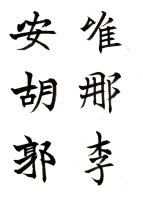 唯那李
安胡郭